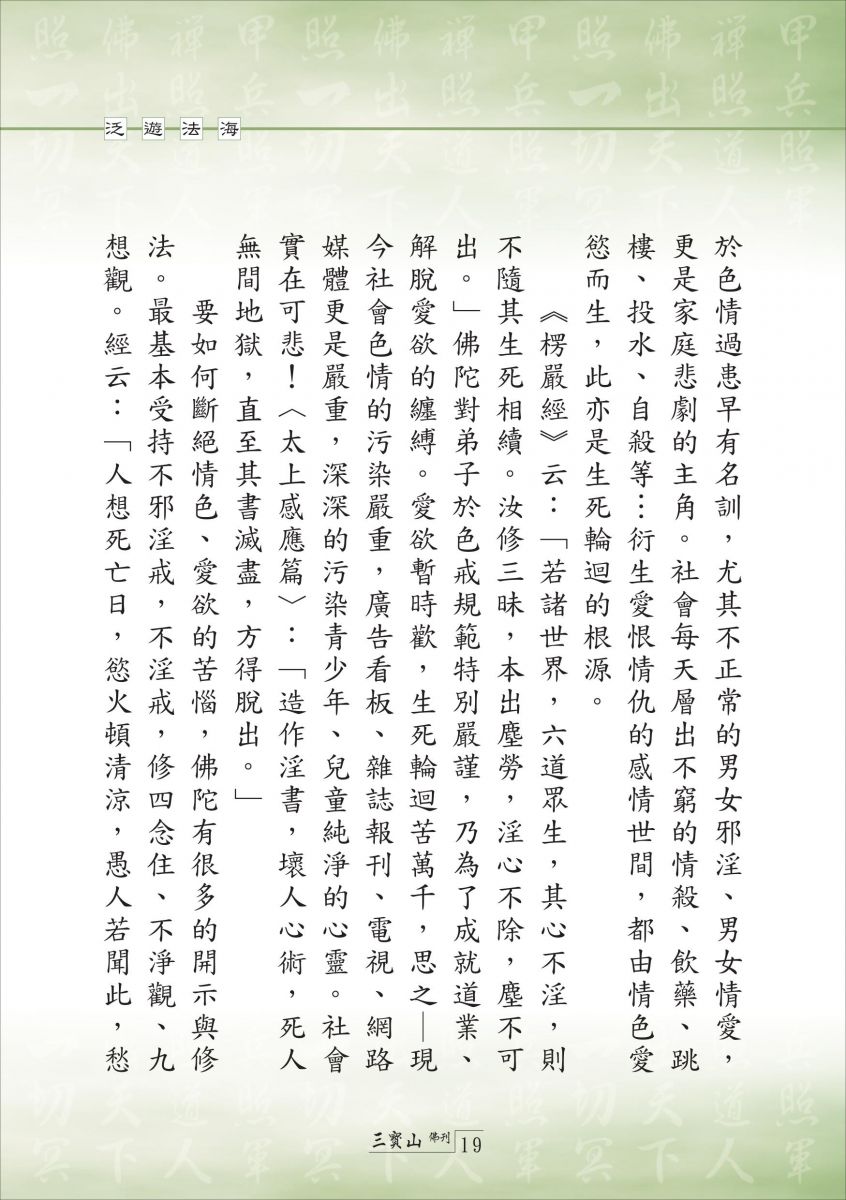 泛遊法海
於色情過患早有名訓，尤其不正常的男女邪淫、男女情愛，
更是家庭悲劇的主角。社會每天層出不窮的情殺、飲藥、跳
樓、投水、自殺等…衍生愛恨情仇的感情世間，都由情色愛
慾而生，此亦是生死輪迴的根源。
《楞嚴經》云：「若諸世界，六道眾生，其心不淫，則
不隨其生死相續。汝修三昧，本出塵勞，淫心不除，塵不可
出。」佛陀對弟子於色戒規範特別嚴謹，乃為了成就道業、
解脫愛欲的纏縛。愛欲暫時歡，生死輪迴苦萬千，思之—現
今社會色情的污染嚴重，廣告看板、雜誌報刊、電視、網路
媒體更是嚴重，深深的污染青少年、兒童純淨的心靈。社會
實在可悲！〈太上感應篇〉：「造作淫書，壞人心術，死人
無間地獄，直至其書滅盡，方得脫出。」
要如何斷絕情色、愛欲的苦惱，佛陀有很多的開示與修
法。最基本受持不邪淫戒，不淫戒，修四念住、不淨觀、九
想觀。經云：「人想死亡日，慾火頓清涼，愚人若聞此，愁
三寶山 佛刊 19